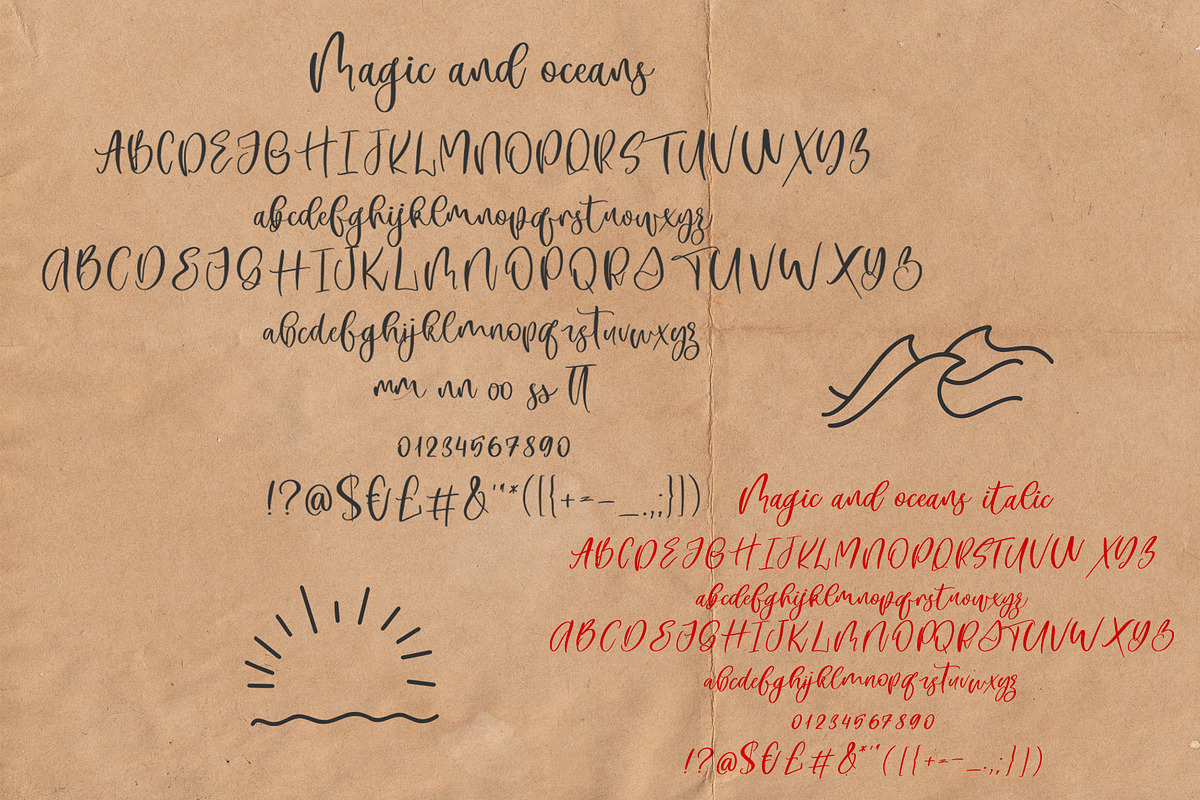 Magic and oceans
ABCDEFGHIJKLMNOPQRSTUVWXYZ
abcdefghijklmnopqrstuvwxyz
ABCDEFGHIJKLMNOPQRSTUVWXYZ
abcdefghijklmnopqrstuvwxyz
mm nn oo ss tt
01234567890
!?@$€£#&'"*([{+=-_.,;}])
Magic and oceans italic
ABCDEFGHIJKLMNOPQRSTUVWXYZ
abcdefghijklmnopqrstuvwxyz
ABCDEFGHIJKLMNOPQRSTUVWXYZ
abcdefghijklmnopqrstuvwxyz
01234567890
!?@$€£#&*"'([{+=-_.,;}])